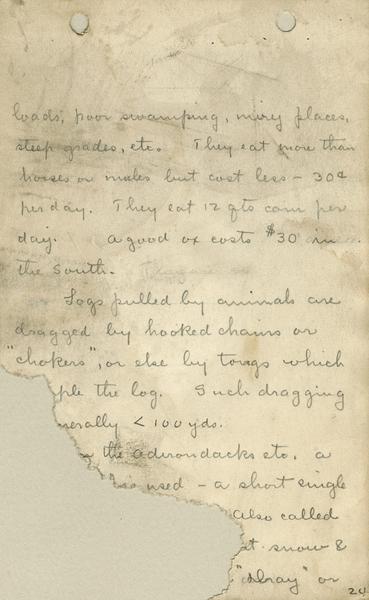 loads, poor swamping, miry places,
steep grades, etc. They eat more than
horses or mules but cost less - 30¢
per day. They eat 12 qts corn per
day. A good ox costs $30 in
the South.
Logs pulled by animals are
dragged by hooked chains or
"chokers", or else by tongs which
ple the log. Such dragging
nerally < 100 yds.
the Adirondacks etc. a
is used - a short single
Also called
at snow &
"dray" or
24